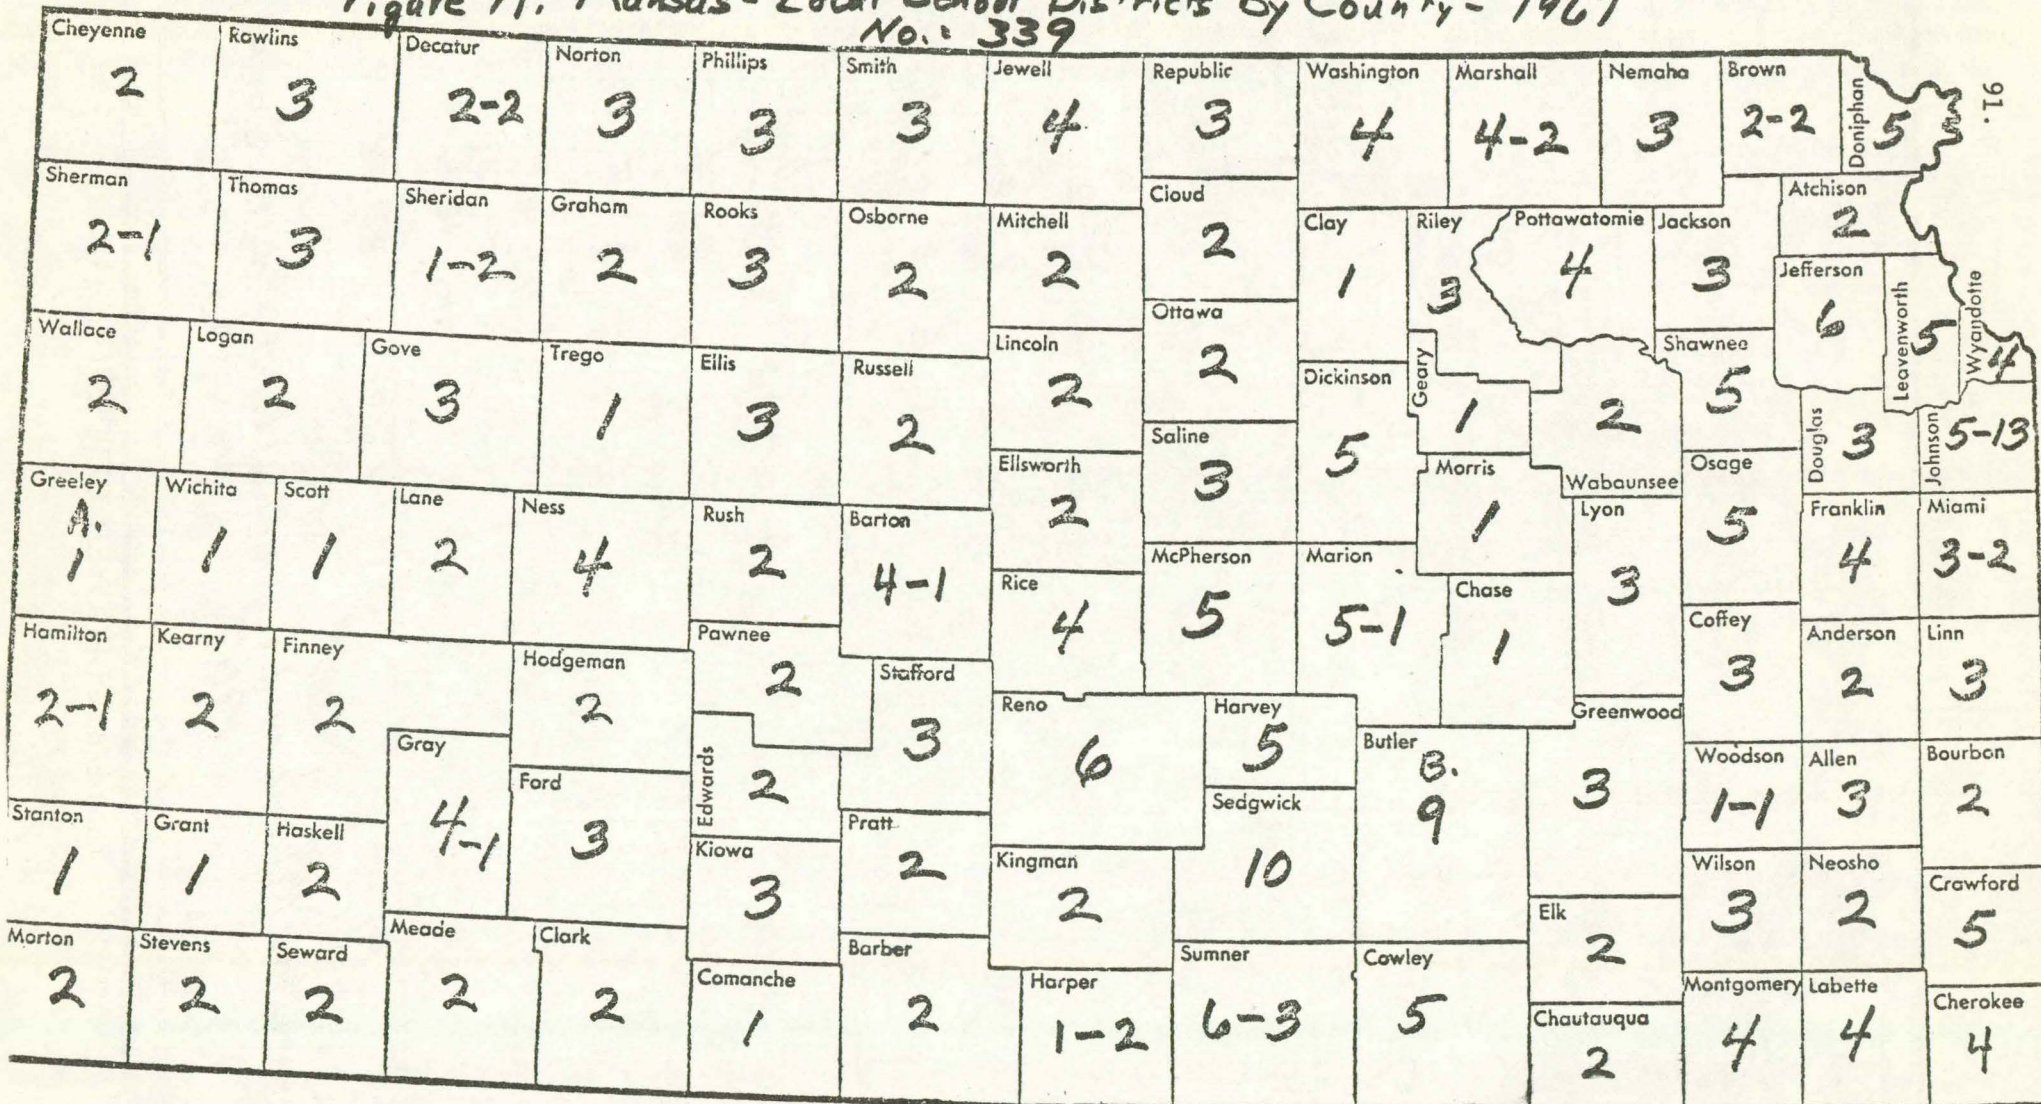 Figure 11. Kansas - Local School Districts By County - 1967
No.: 339
91.
Cheyenne
2
Rawlins
3
Decatur
2-2
Norton
3
Phillips
3
Smith
3
Jewell
4
Republic
3
Washington
4
Marshall
4-2
Nemaha
3
Brown
2-2
Doniphan
5
Sherman
2-1
Thomas
3
Sheridan
1-2
Graham
2
Rooks
3
Osborne
2
Mitchell
2
Cloud
2
Clay
1
Riley
3
Pottawatomie
4
Jackson
3
Atchison
2
Jefferson
6
Leavenworth
5
Wyandotte
4
Wallace
2
Logan
2
Gove
3
Trego
1
Ellis
3
Russell
2
Lincoln
2
Ottawa
2
Dickinson
5
Geary
1
Wabaunsee
2
Shawnee
5
Douglas
3
Johnson
5-13
Greeley
A.
1
Wichita
1
Scott
1
Lane
2
Ness
4
Rush
2
Barton
4-1
Ellsworth
2
Saline
3
Morris
1
Lyon
3
Osage
5
Franklin
4
Miami
3-2
Hamilton
2-1
Kearny
2
Finney
2
Hodgeman
2
Pawnee
2
Stafford
3
Rice
4
McPherson
5
Marion
5-1
Chase
1
Coffey
3
Anderson
2
Linn
3
Gray
4-1
Ford
3
Edwards
2
Reno
6
Harvey
5
Butler
B.
9
Greenwood
3
Woodson
1-1
Allen
3
Bourbon
2
Stanton
1
Grant
1
Haskell
2
Kiowa
3
Pratt
2
Kingman
2
Sedgwick
10
Elk
2
Wilson
3
Neosho
2
Crawford
5
Morton
2
Stevens
2
Seward
2
Meade
2
Clark
2
Comanche
1
Barber
2
Harper
1-2
Sumner
6-3
Cowley
5
Chautauqua
2
Montgomery
4
Labette
4
Cherokee
4